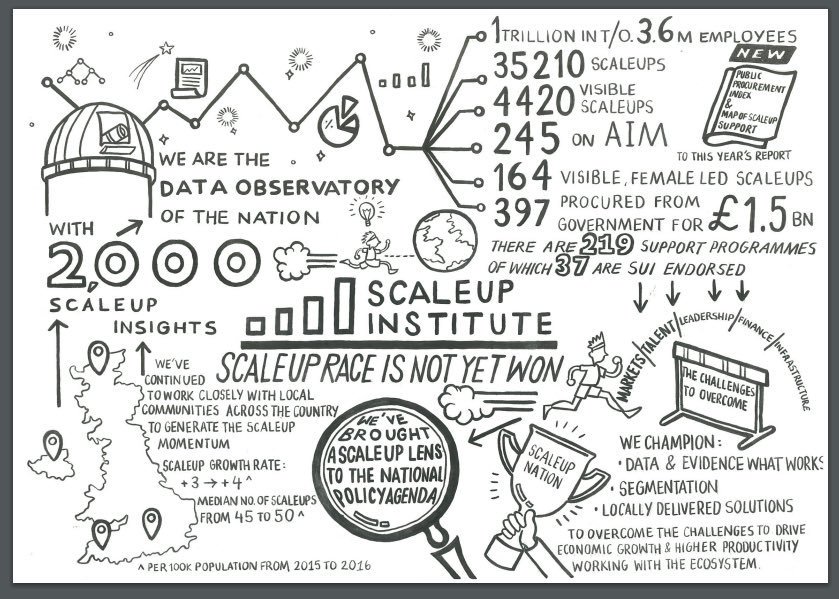 1 TRILLION IN T/O. 3.6 M EMPLOYEES
35210 SCALEUPS
4420 VISIBLE
SCALEUPS
245 ON AIM
164 VISIBLE, FEMALE LED SCALEUPS
397 PROCURED FROM
GOVERNMENT FOR £1.5 BN
NEW
PUBLIC
PROCUREMENT
INDEX
&
MAP OF SCALEUP
SUPPORT
TO THIS YEAR'S REPORT
THERE ARE 219 SUPPORT PROGRAMMES
OF WHICH 37 ARE SUI ENDORSED
%
WE ARE THE
DATA OBSERVATORY
OF THE NATION
WITH
2,000
SCALEUP
INSIGHTS
SCALEUP
INSTITUTE
SCALEUP RACE IS NOT YET WON
WE'VE
CONTINUED
TO WORK CLOSELY WITH LOCAL
COMMUNITIES ACROSS THE COUNTRY
TO GENERATE THE SCALEUP
MOMENTUM
SCALEUP GROWTH RATE:
+3 → +4 ^
MEDIAN NO. OF SCALEUPS
FROM 45 TO 50 ^
^ PER 100K POPULATION FROM 2015 TO 2016
WE'VE
BROUGHT
A SCALEUP LENS
TO THE NATIONAL
POLICY AGENDA
MARKETS/TALENT/LEADERSHIP/FINANCE/INFRASTRUCTURE
THE CHALLENGES
TO OVERCOME
SCALEUP
NATION
WE CHAMPION:
• DATA & EVIDENCE WHAT WORKS
• SEGMENTATION
• LOCALLY DELIVERED SOLUTIONS
TO OVERCOME THE CHALLENGES TO DRIVE
ECONOMIC GROWTH & HIGHER PRODUCTIVITY
WORKING WITH THE ECOSYSTEM.